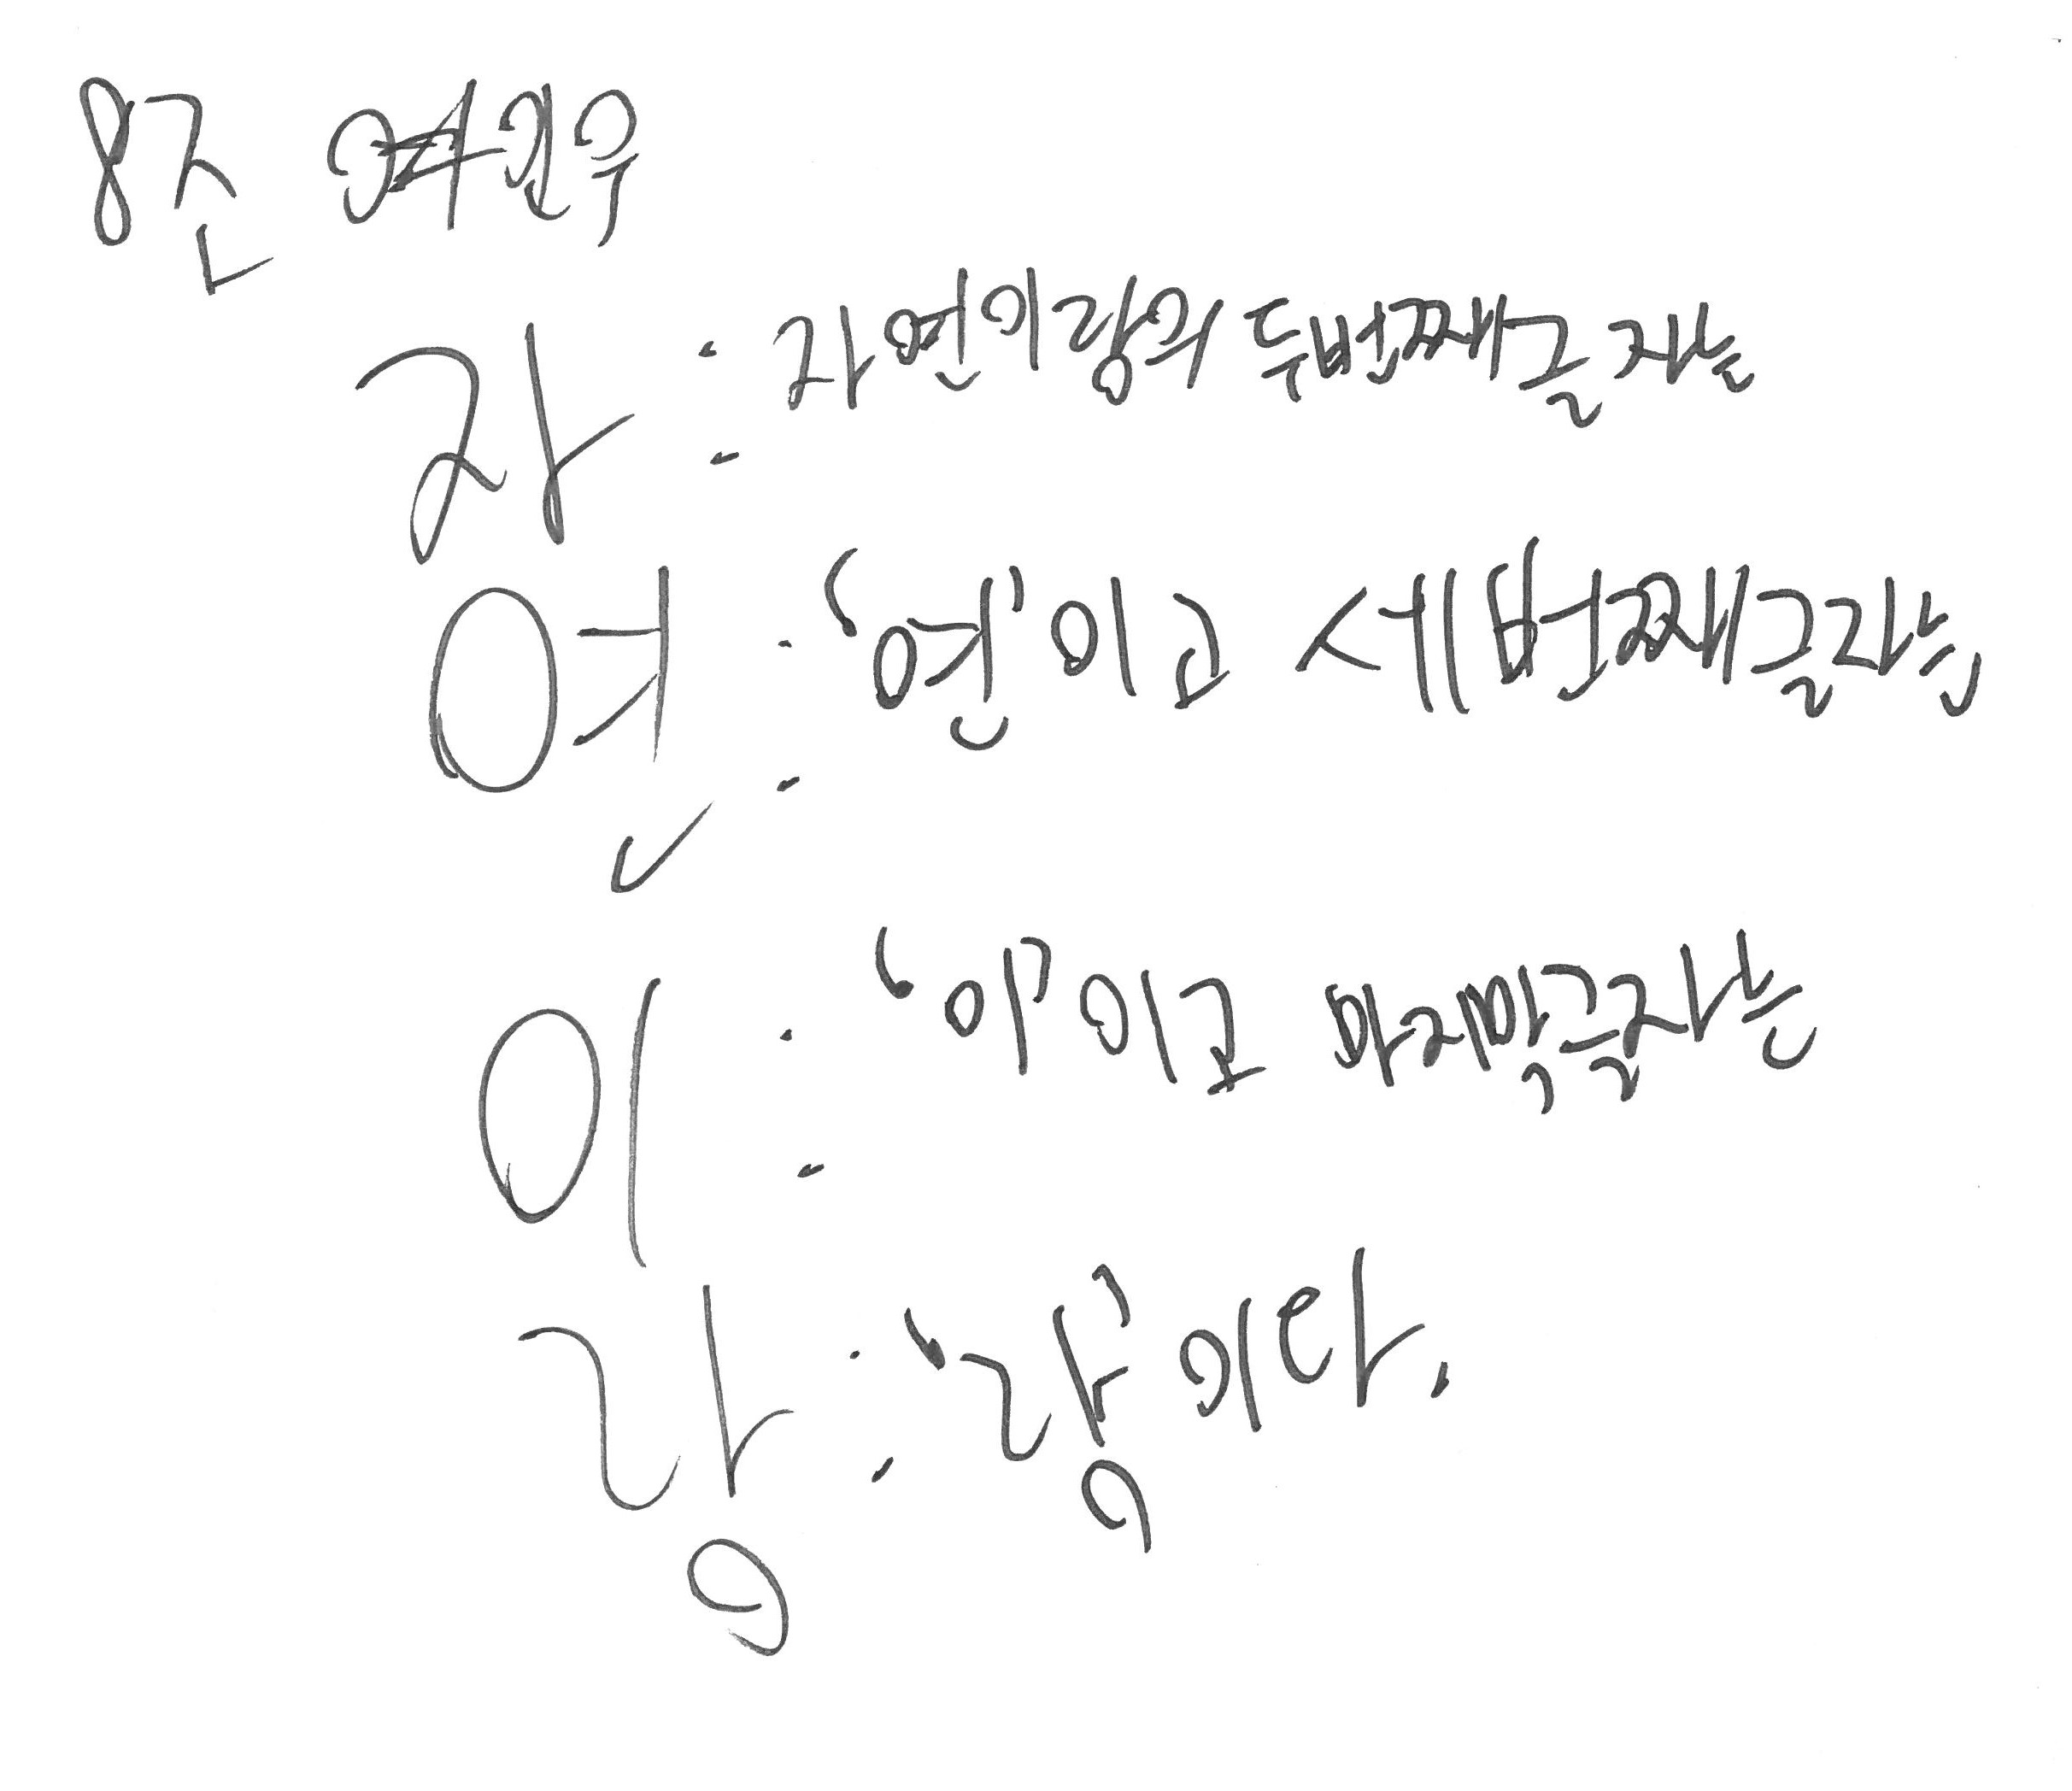 8조
자 : 자연이랑의 두번째글자는
연 : '연'이고 세번째글자는
이 : '이'이고 마지막글자는
랑 : '랑'이다.